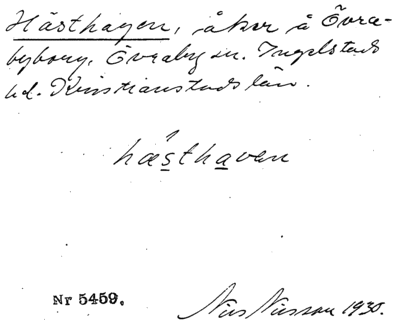 Hästhagen, åker å Övra-
byborg, Övraby sn. Ingelstads
hd. Kristianstads län.
hæsthaven
Nr 5459.
Nils Nilsson 1930.